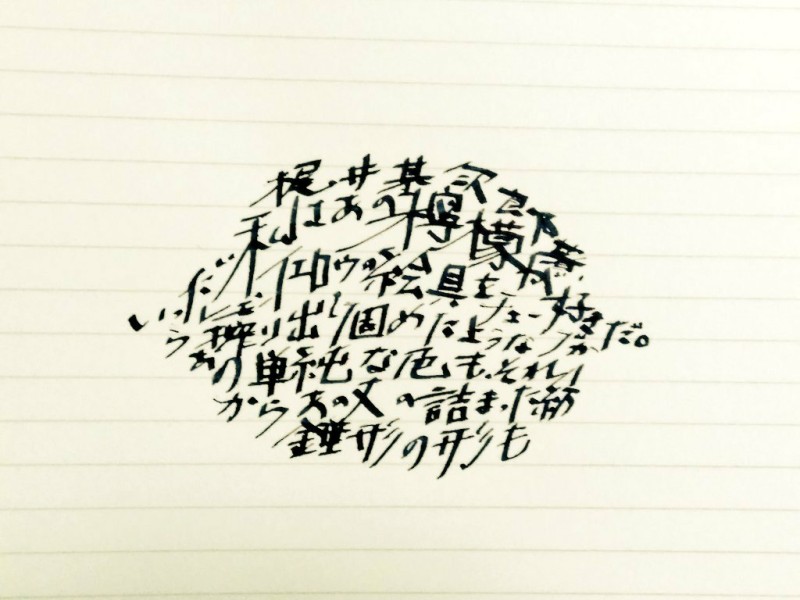 梶井基次郎
いったい私はあの檸檬が好きだ。
レモンイエロウの絵具をチューブか
ら搾り出して固めたような
あの単純な色も、それ
からあの丈の詰まった紡
錘形の形も